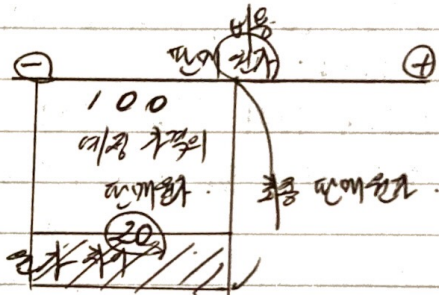 비용
⊖ 판매 권가 ⊕
100
예정 가격의
판매원가
최종 판매원가
20
원가 차이